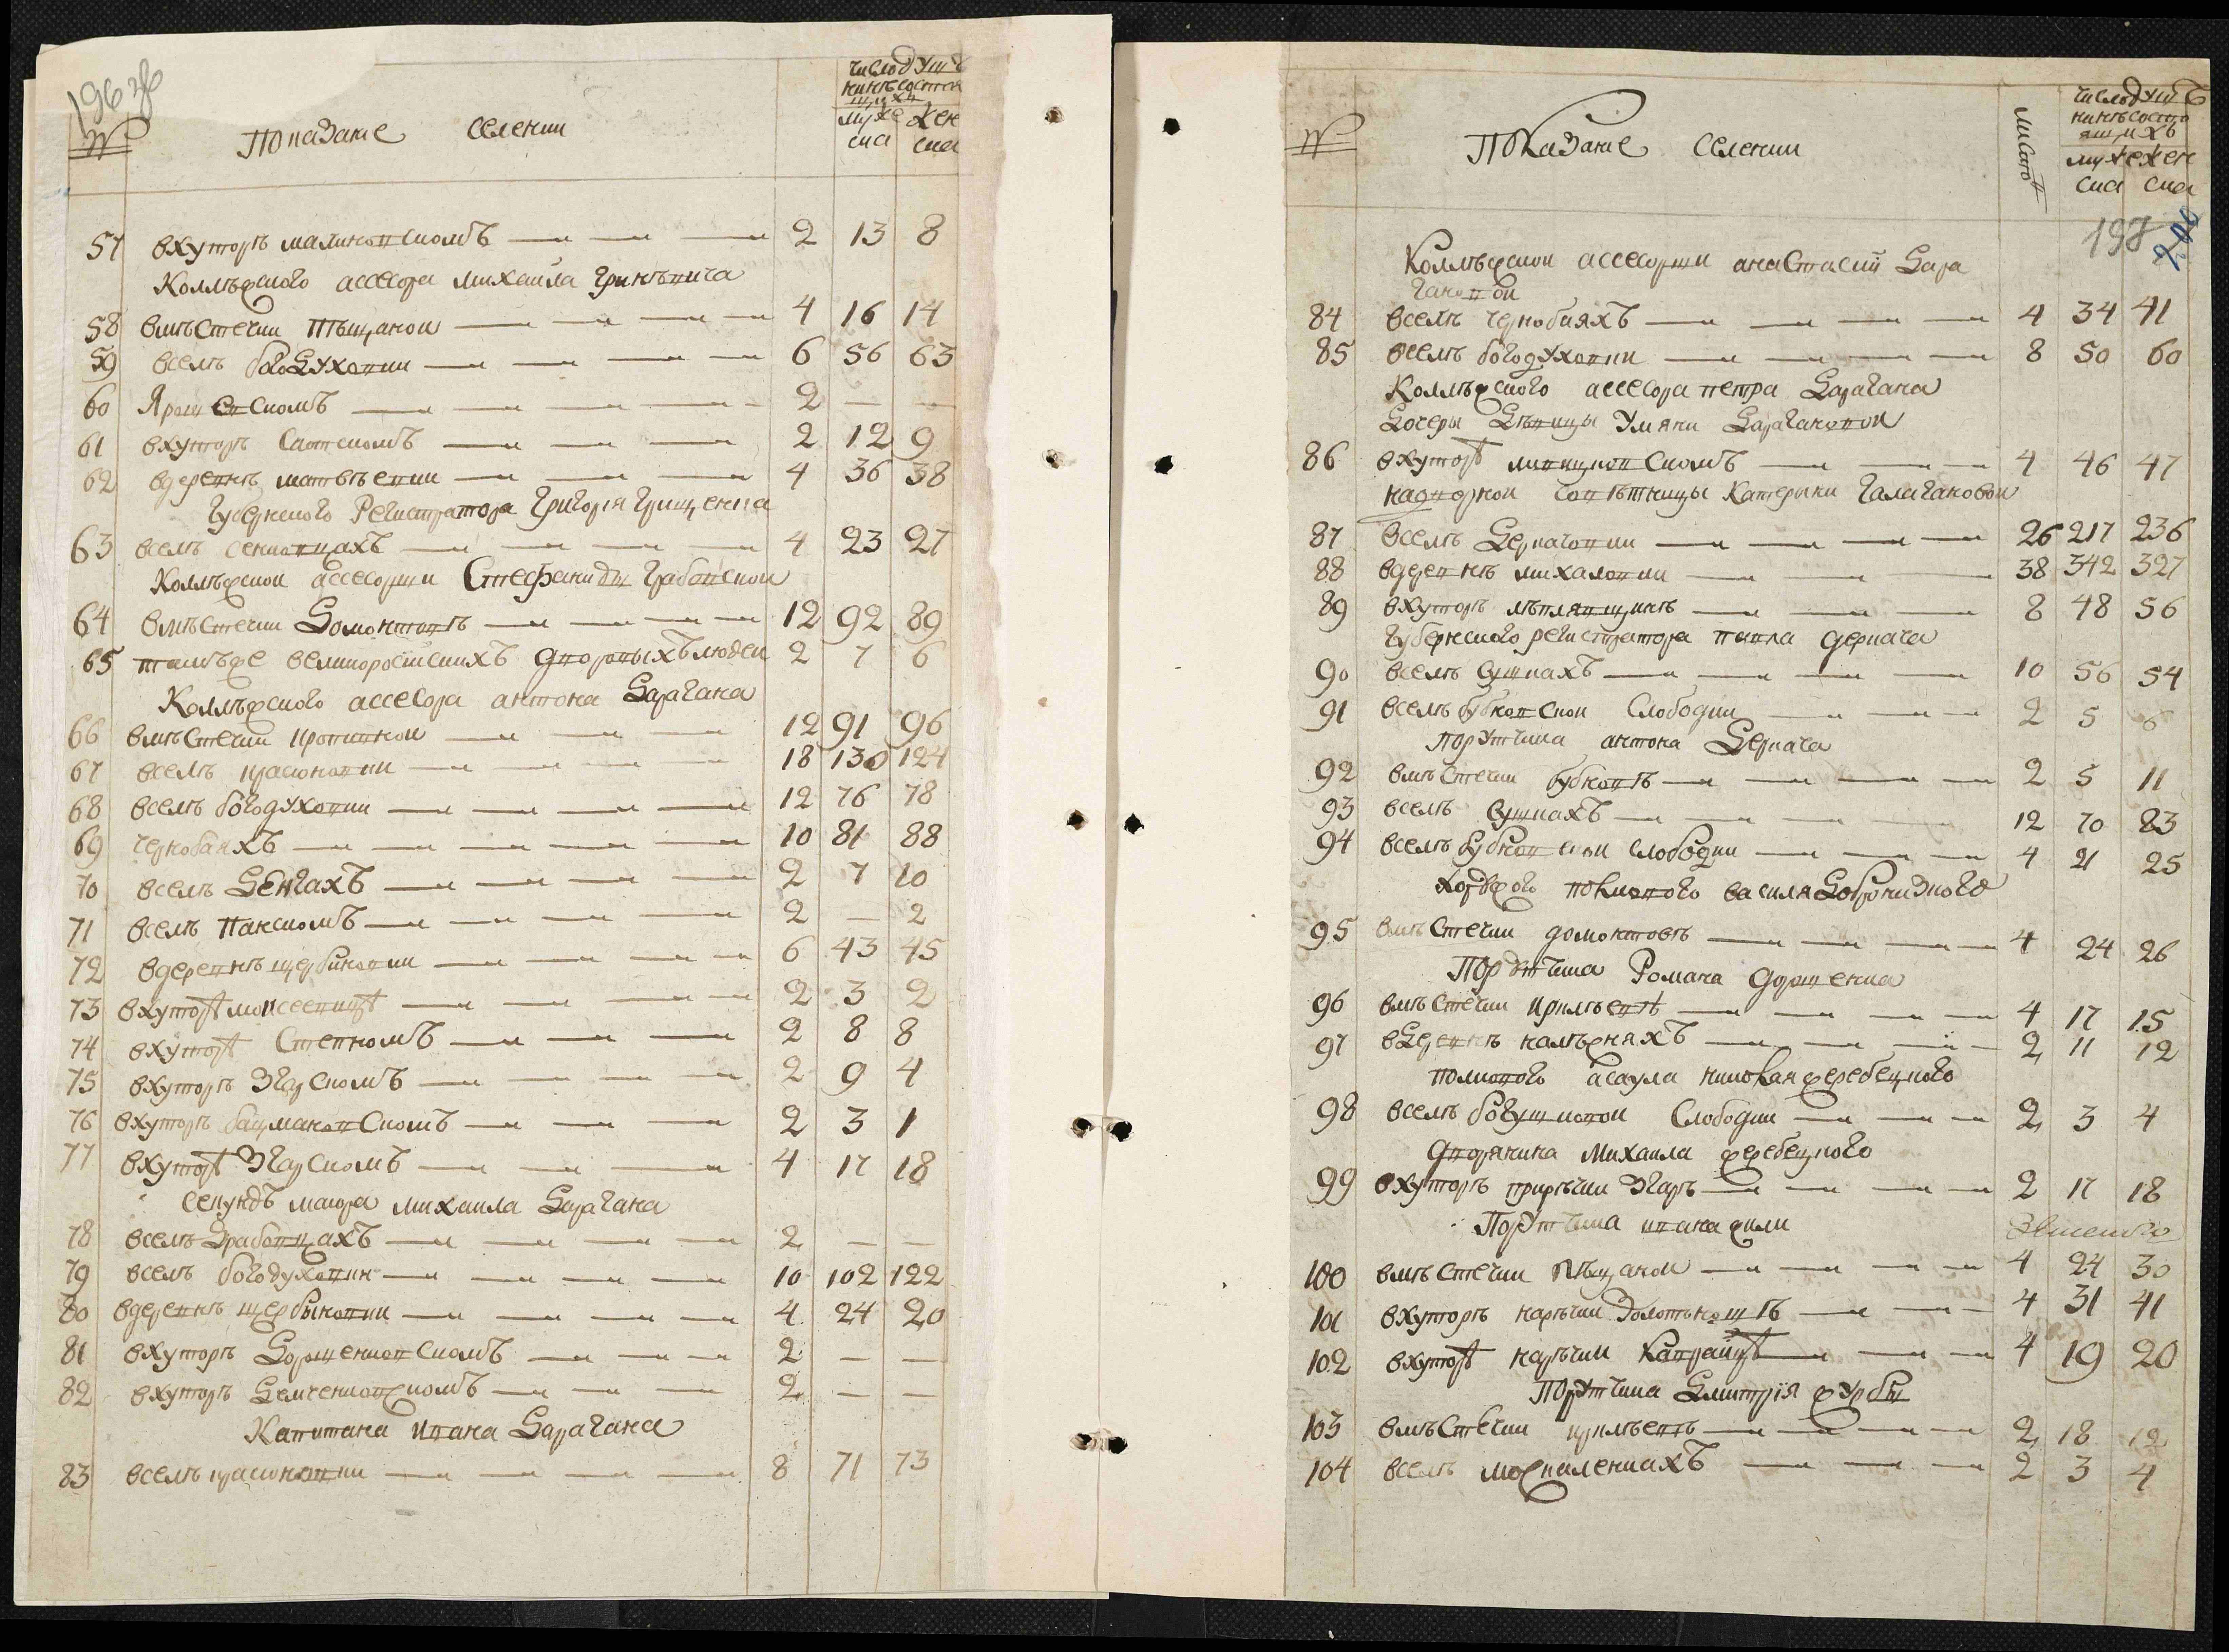 196 зв
№ Показание селении число душъ
в нихъ состоя
щихъ
муже ска жен ска
57 в хуторѣ малинювскомъ 2 13 8
Коллѣжского ассесора михаила гриневича
58 в мѣстечки пѣщаном 4 16 14
59 в селѣ богодуховки 6 56 63
60 Ярошевскомъ 2 — —
61 в хуторѣ саввскомъ 2 12 9
62 в деревнѣ матвѣевки 4 36 38
Губернского Регистратора григория грищенка
63 в селѣ сенковцахъ 4 23 27
Коллѣжскои ассесорши Стефаниды грабовскои
64 в мѣстечки домонтовѣ 12 92 89
65 тамъже великоросийскихъ дворовыхъ людеи 2 7 6
Коллѣжского ассесора антона дарагана
66 в мѣстечки кропивнои 12 91 96
67 в селѣ красюновки 18 130 124
68 в селѣ богодуховки 12 76 78
69 чернобаяхъ 10 81 88
70 в селѣ денгахъ 2 7 10
71 в селѣ панскомъ 2 — 2
72 в деревнѣ щербиновки 6 43 45
73 в хуторѣ моисеевцѣ 2 3 2
74 в хуторѣ Степномъ 2 8 8
75 в хуторѣ згарскомъ 2 9 4
76 в хуторѣ бацмановскомъ 2 3 1
77 в хуторѣ згарскомъ 4 17 18
секундъ маиора михаила дарагана
78 в селѣ драбовцахъ 2 — —
79 в селѣ богодуховки 10 102 122
80 в деревнѣ щербыновки 4 24 20
81 в хуторѣ дорошенковскомъ 2 — —
82 в хуторѣ демченковскомъ 2 — —
Капитана ивана дарагана
83 в селѣ красюновки 8 71 73
№ Показание селении число душъ
в нихъ состо
ящихъ
муже ска жен ска
197
Коллѣжскои ассесорши анастасии дара
гановои
84 в селѣ чернобаяхъ 4 34 41
85 в селѣ богодуховки 8 50 60
Коллѣжского ассесора петра дарагана
дочеры дѣвицы Уляни дарагановои
86 в хуторѣ липицковскомъ 4 46 47
надворнои советницы Катерыни галагановои
87 в селѣ деркачовки 26 217 236
88 в деревнѣ михаловки 38 342 327
89 в хуторѣ мѣплявщикѣ 8 48 56
губернского регистратора павла деркача
90 в селѣ сушкахъ 10 56 54
91 в селѣ бубновскои Слободки 2 5 6
Порутчика антона деркача
92 в мѣстечки бубновѣ 2 5 11
93 в селѣ сушкахъ 12 70 83
94 в селѣ бубновскои слободки 4 21 25
хоружого полкового василя доброницкого
95 в мѣстечки домонтовѣ 4 24 26
Порутчика Романа дорошенка
96 в мѣстечки ирклѣевѣ 4 17 15
97 в деревнѣ калѣжняхъ 2 11 12
полкового асаула николая жеребецкого
98 в селѣ богушковои Слободки 2 3 4
дворянина михаила жеребецкого
99 в хуторѣ прирѣчки згарѣ 2 17 18
Порутчика ивана жили
100 в мѣстечки пѣщанои 4 24 30
101 в хуторѣ нарѣчки золотоношѣ 4 31 41
102 в хуторѣ нарѣчки каврайцѣ 4 19 20
Порутчика дмитрия журбы
103 в мѣстечки ирклѣевѣ 2 18 12
104 в селѣ москаленкахъ 2 3 4